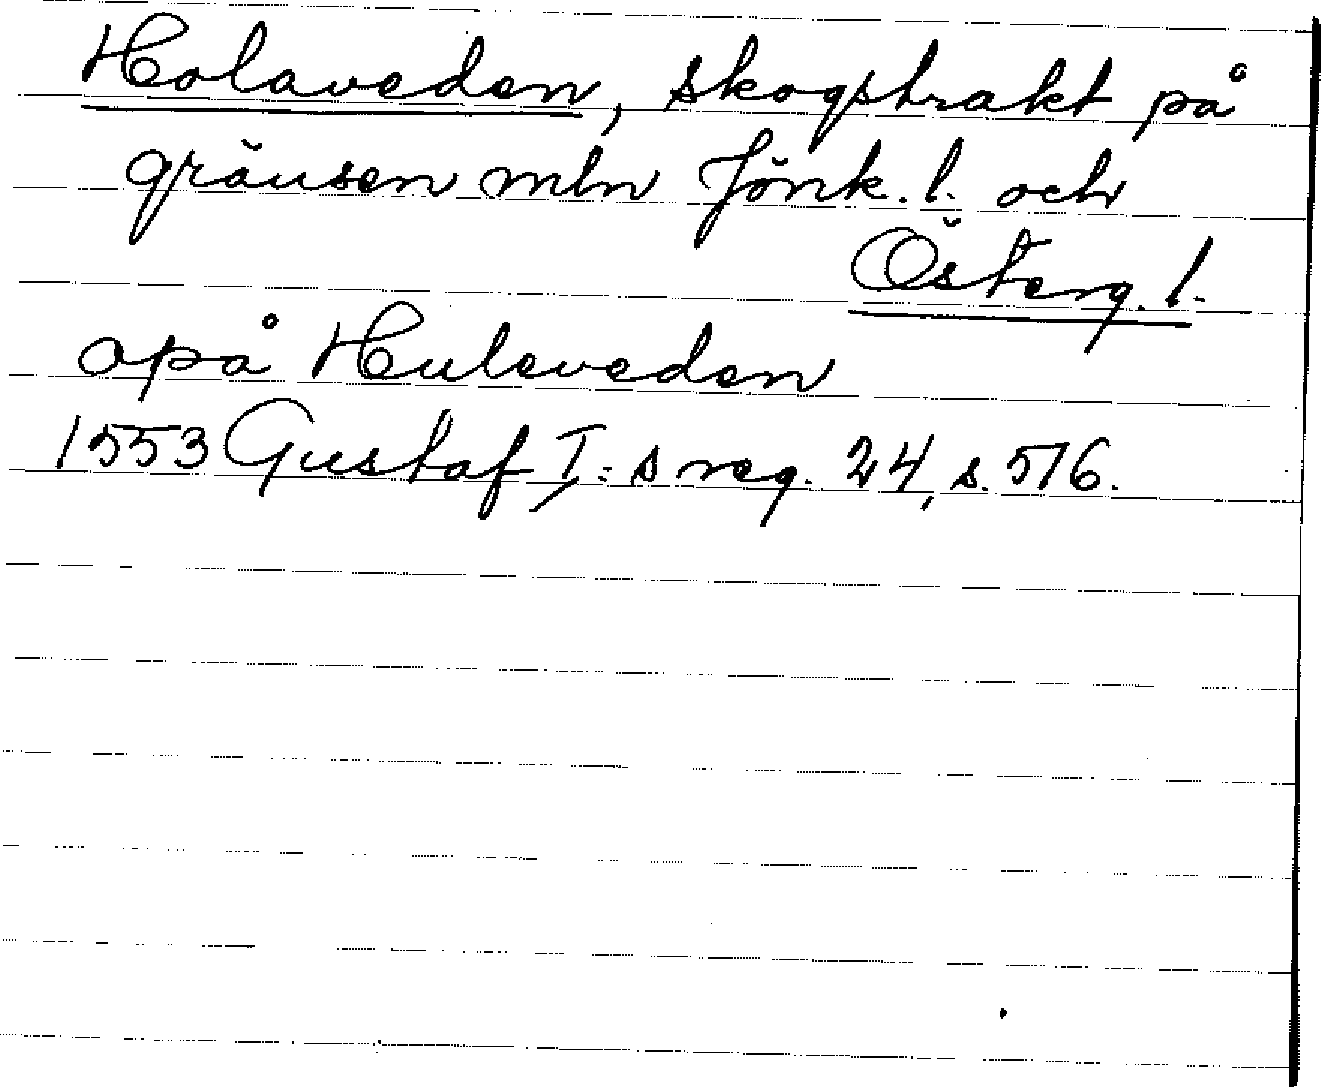 Holaveden, skogstrakt på
gränsen mln Jönk. l. och
Österg. l.
opå Huleveden
1553 Gustaf I:s reg. 24, s. 516.